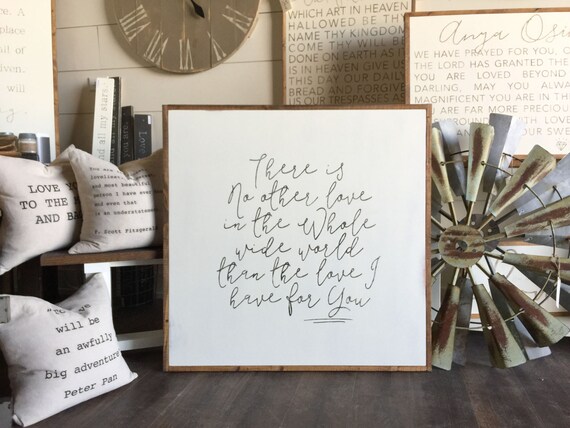 WHICH ART IN HEAVEN
HALLOWED BE TH
NAME THY KINGDOM
COME THY WILL BE
DONE ON EARTH AS IT
IS IN HEAVEN GIVE US
THIS DAY OUR DAILY
BREAD AND FORGIVE
US OUR TRESPASSES AS
Anya
WE HAVE PRAYED FOR YOU,
THE LORD HAS GRANTED THE
YOU ARE LOVED BEYOND
DARLING, MAY YOU ALWAY
MAGNIFICENT YOU ARE IN TH
ARE FAR MORE PRECIOUS
LOVE YO
TO THE
AND BA
and most beautiful
person I have ever
and even that
is an understatement.
F. Scott Fitzgerald
will be
an awfully
big adventure
Peter Pan
There is
No other love
in the Whole
wide world
than the love I
have for You